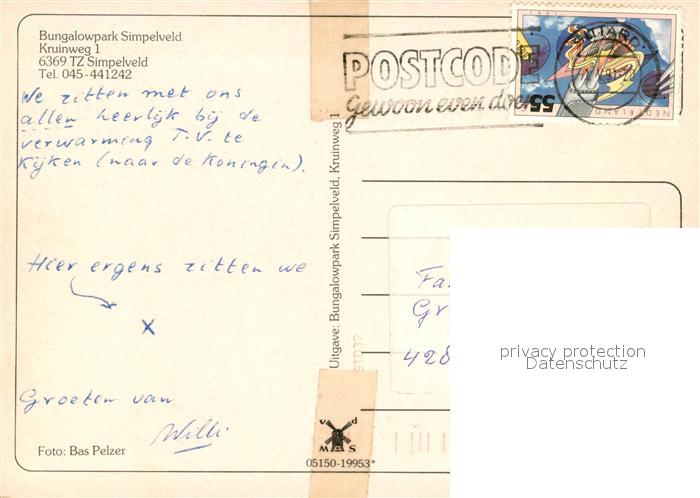 Bungalowpark Simpelveld
Kruinweg 1
6369 TZ Simpelveld
Tel. 045-441242
We zitten met ons
allen heerlijk bij de
verwarming T.V. te
kijken (naar de Koningin).
Hier ergens zitten we
x
Groeten van
Willi
Foto: Bas Pelzer
Uitgave: Bungalowpark Simpelveld, Kruinweg 1
v d
MAS
05150-19953*
POSTCODE
Gewoon even doen
55
NEDERLAND
STD32
Fa
Gr
428
privacy protection
Datenschutz